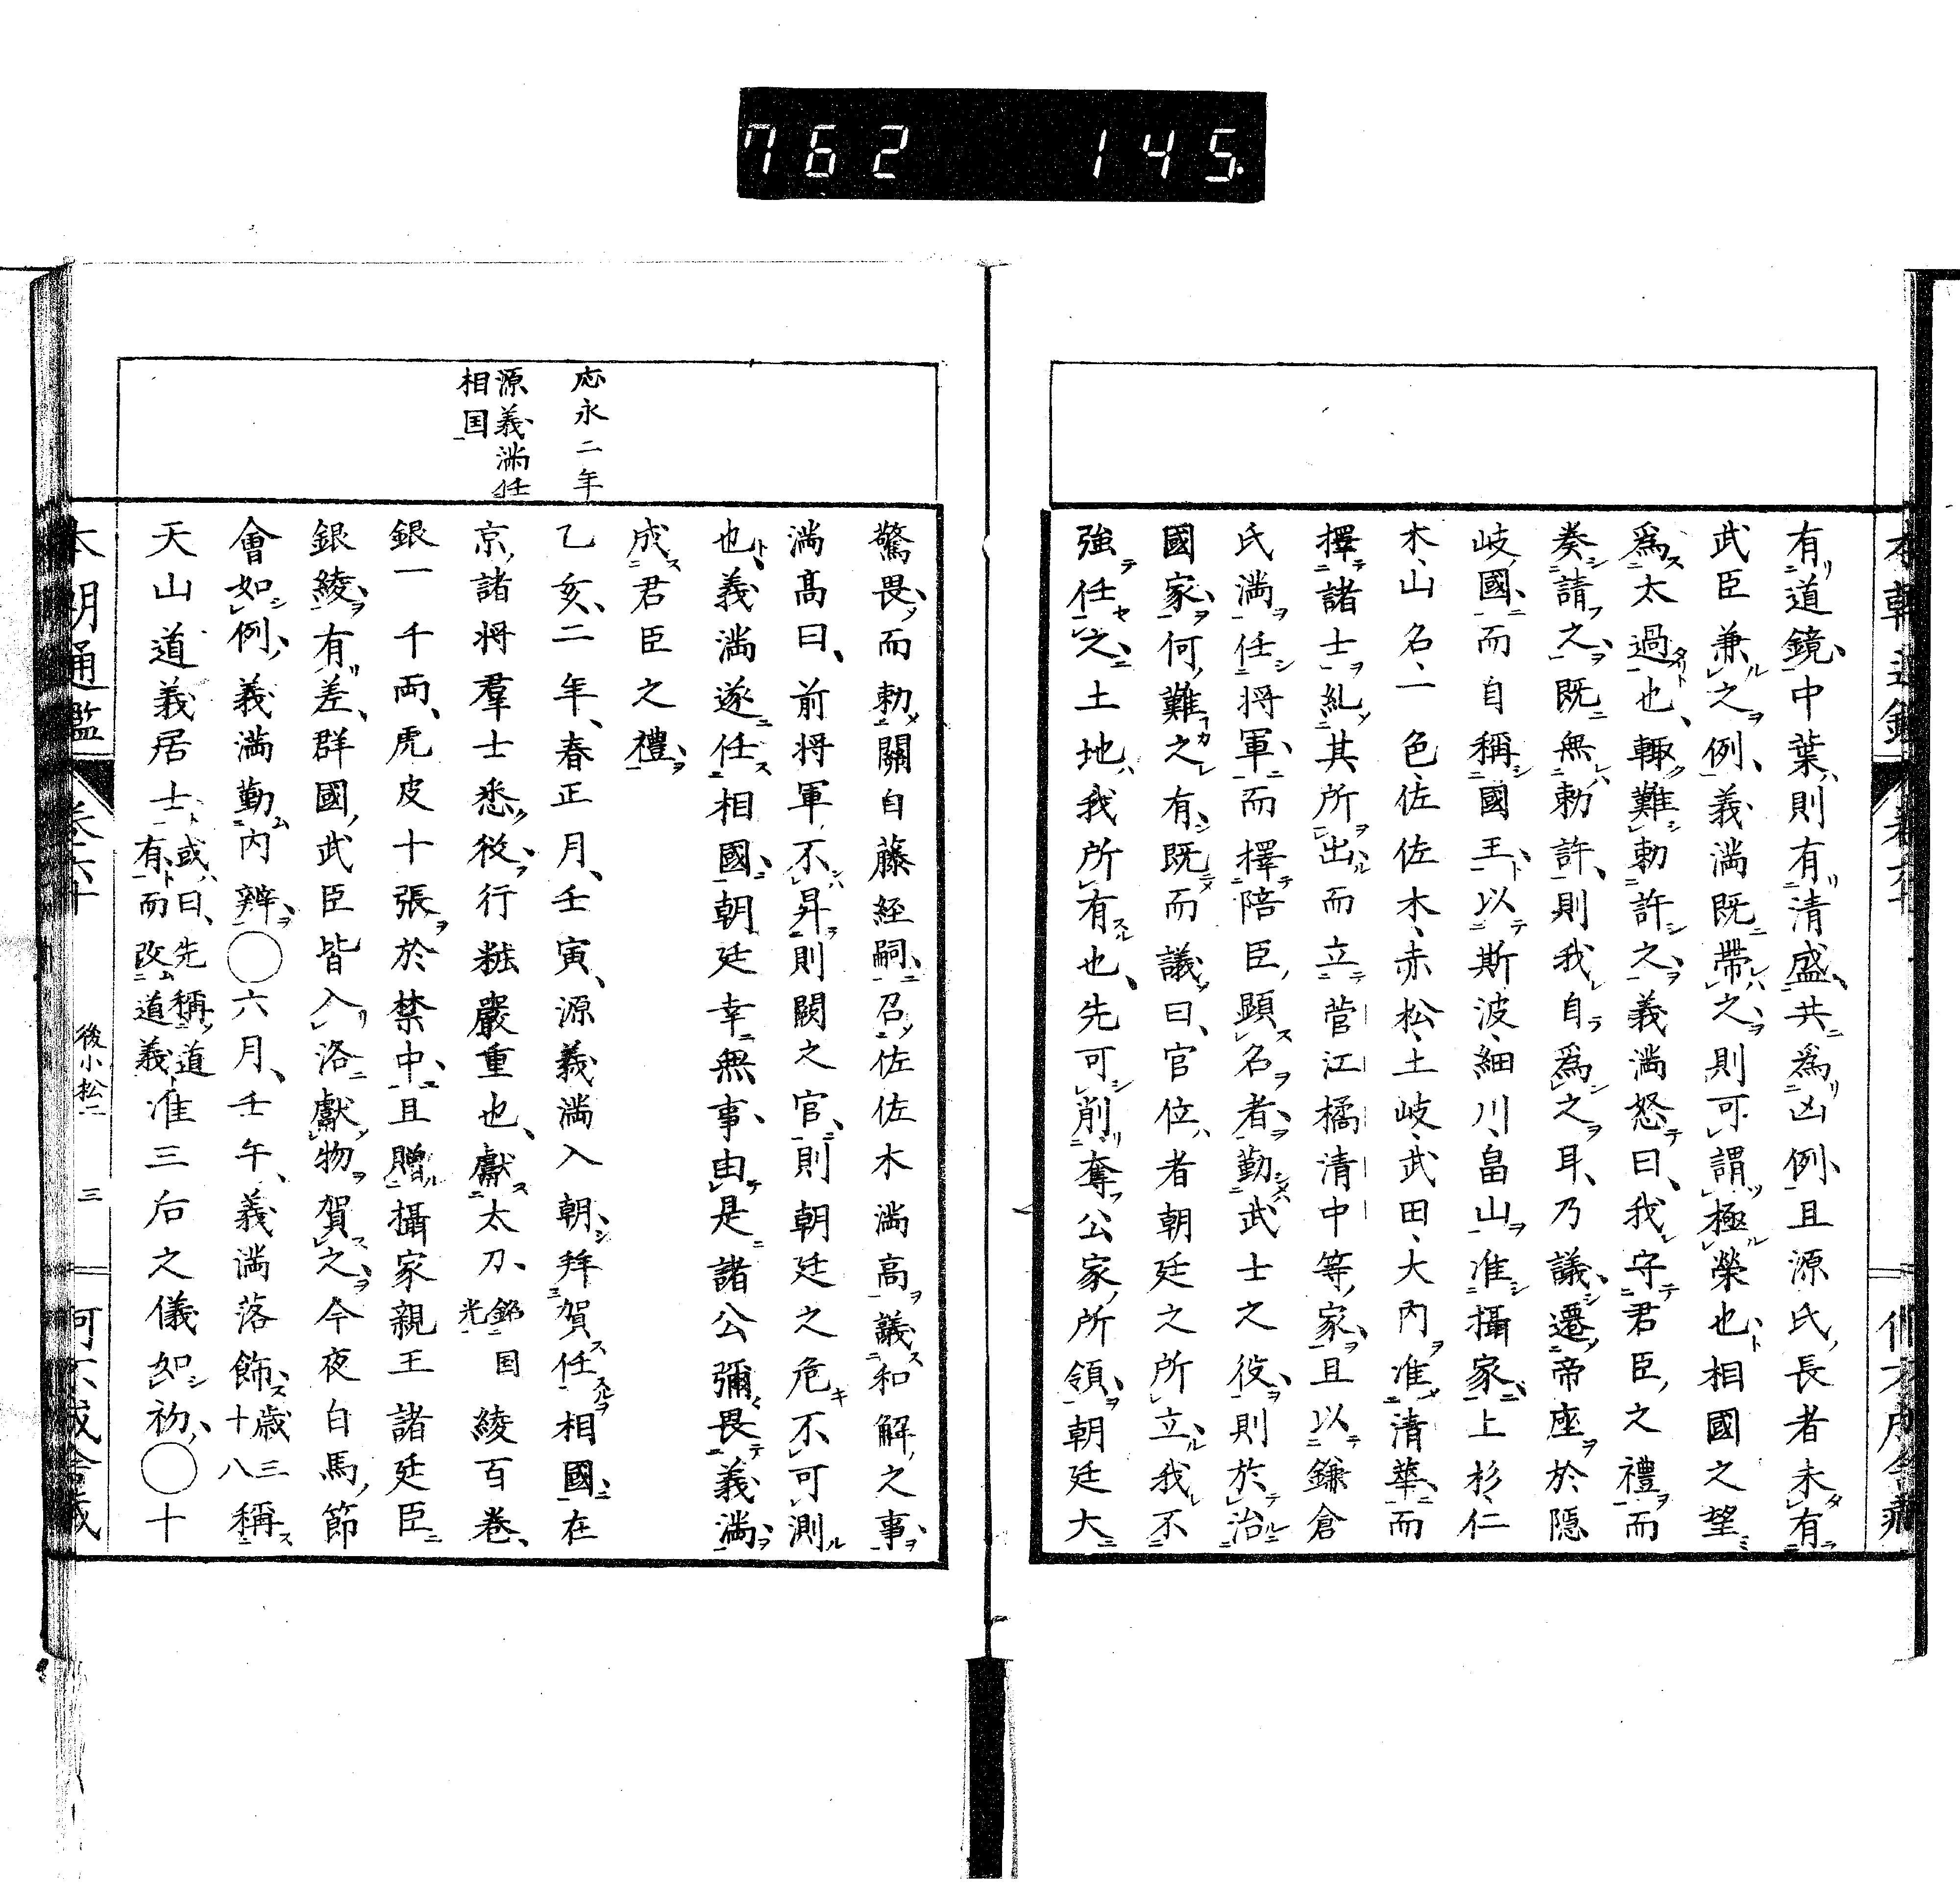 762 145
有道鏡中葉則有清盛共爲凶例且源氏長者未有
武臣兼之例義満既帶之則可謂極榮也相國之望
爲太過也輙難勅許之義満怒曰我守君臣之禮而
奏請之既無勅許則我自爲之耳乃議遷帝座於隠
岐國而自稱國王以斯波細川畠山准攝家上杉仁
木山名一色佐佐木赤松土岐武田大内准清華而
擇諸士糺其所出而立菅江橘清中等家且以鎌倉
氏満任将軍而擇陪臣顕名者勤武士之役則於治
國家何難之有既而議曰官位者朝廷之所立我不
強任之土地我所有也先可削奪公家所領朝廷大
応永二年
源義満任
相国
驚畏而勅關白藤経嗣召佐佐木満高議和解之事
満髙曰前将軍不昇則闕之官則朝廷之危不可測
也義満遂任相國朝廷幸無事由是諸公彌畏義満
成君臣之禮
乙亥二年春正月壬寅源義満入朝拜賀任相國在
京諸将羣士悉從行粧嚴重也獻太刀銘国光綾百卷
銀一千両虎皮十張於禁中且贈攝家親王諸廷臣
銀綾有差群國武臣皆入洛獻物賀之今夜白馬節
會如例義満勤内辨〇六月壬午義満落飾歳三十八稱
天山道義居士或曰先稱道有而改道義准三后之儀如初〇十
本朝通鑑 卷六十 後小松二 三